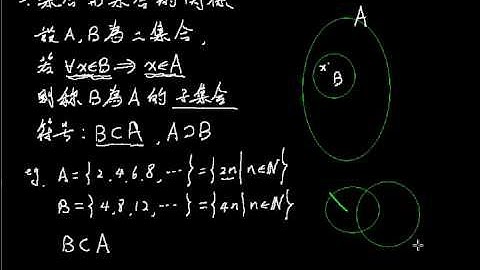 集合與集合的関係
設A,B為二集合,
若 ∀x∈B ⇒ x∈A
則称 B為A的子集合
符号: B⊂A , A⊃B
eg. A={2,4,6,8,⋯}={2n|n∈N}
B={4,8,12,⋯}={4n|n∈N}
B⊂A
A
x
B